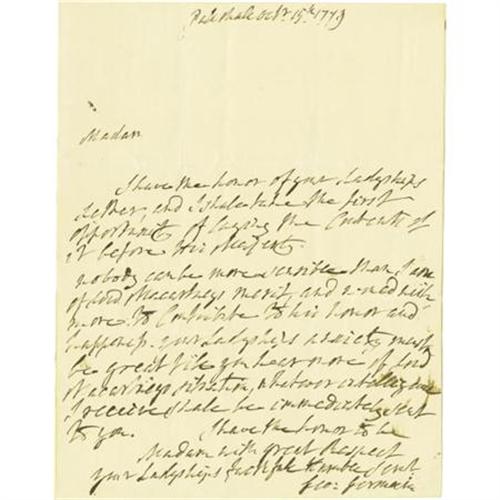 Pall Mall Octbr. 15th 1779
Madam
I have the honor of your Ladyships
letter, and I shall take the first
opportunity of laying the Contents of
it before His Majesty.
nobody can be more sensible than I am
of Lord Macartneys merit, and
more to Contribute to his honor and
happiness. your Ladyships anxiety must
be great till you hear more of Lord
Macartneys situation, whatever intelligence
I receive shall be immediately sent
to you. I have the honor to be
Madam with great Respect
your Ladyships faithful Humble Servt
Geo: Germain